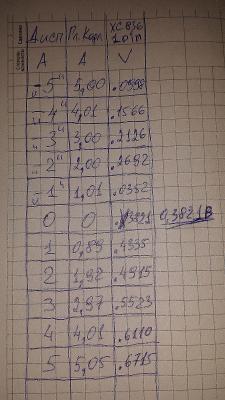 Дисп Пл.Кор XC836 10in
A A V
"-5" 5,00 .0998
"-4" 4,01 .1566
"-3" 3,00 .2126
"-2" 2,00 .2692
"-1" 1,01 .0352
0 0 .3821 0,3821В
1 0,89 .4335
2 1,92 .4915
3 2,97 .5523
4 4,01 .6110
5 5,05 .6715